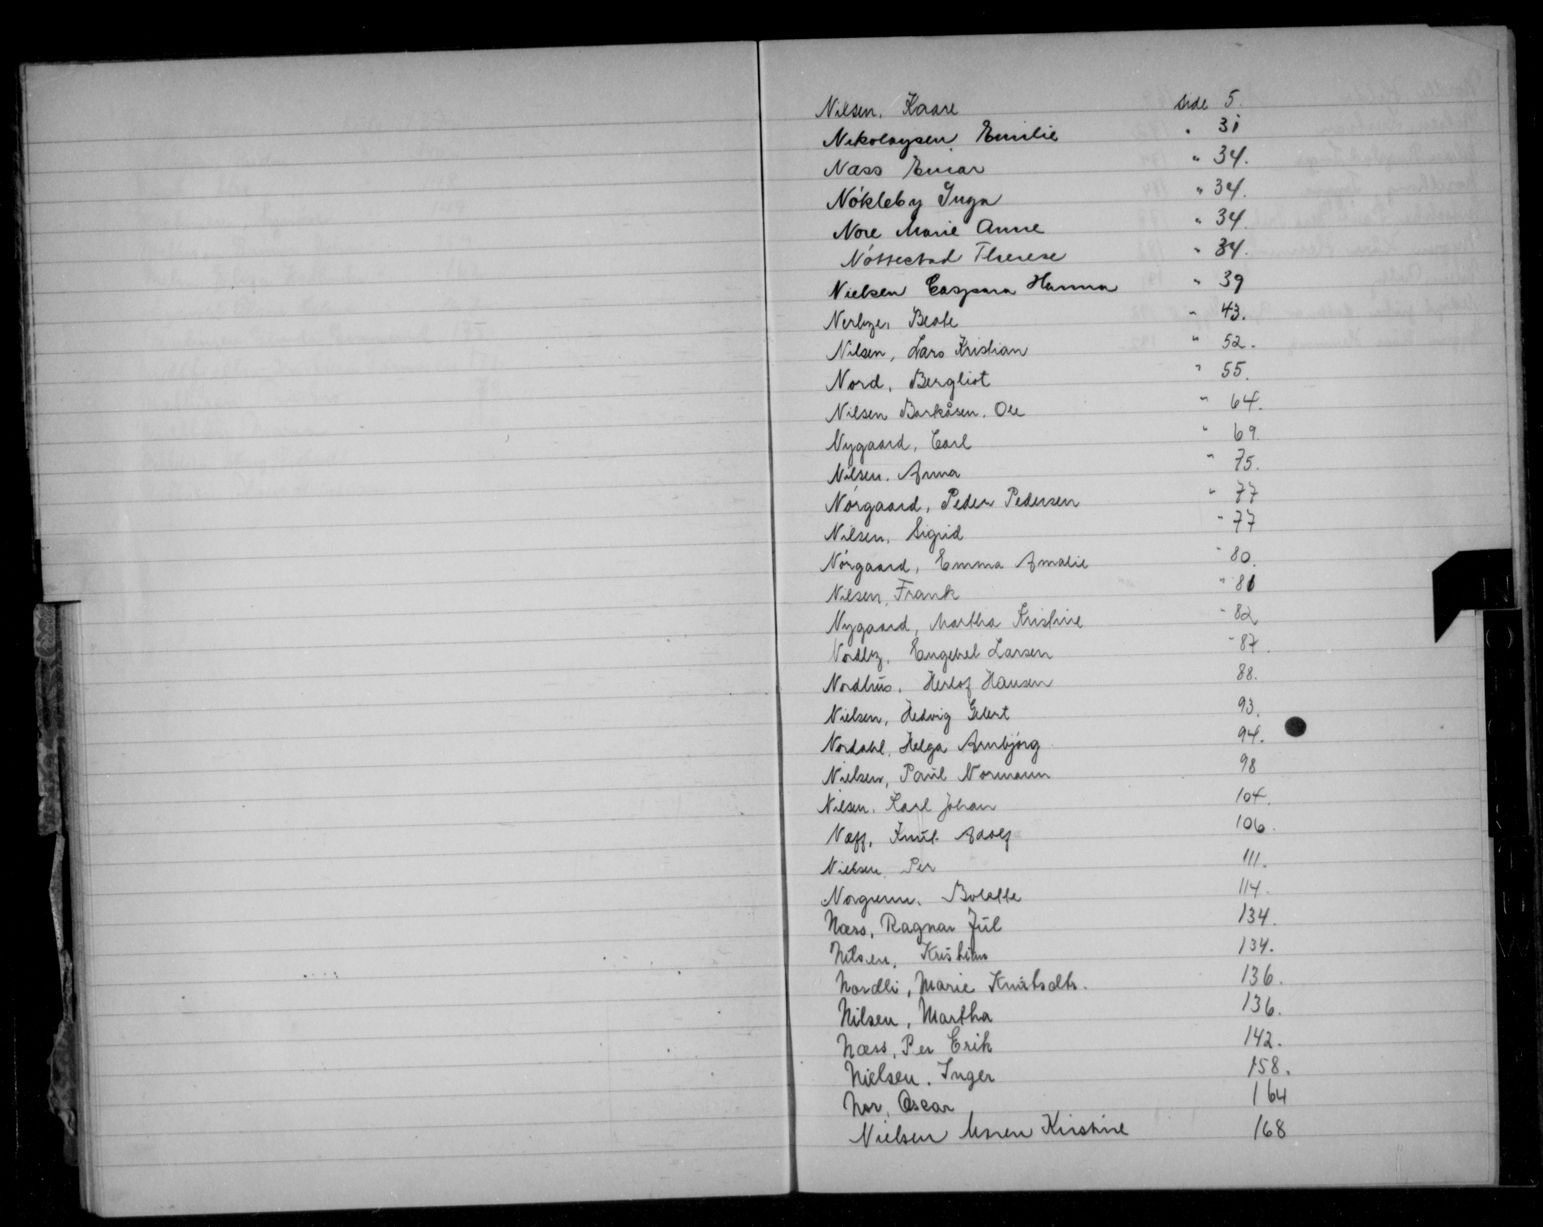 Nilsen, Kaare side 5.
Nikolaysen, Emilie " 31
Næss Einar " 34.
Nökleby Inga " 34.
Nore Marie Anne " 34.
Nöttestad Therese " 34.
Nielsen Caspara Hanna " 39
Nerbye, Beate " 43.
Nilsen, Lars Kristian " 52.
Nord, Bergliot " 55.
Nilsen Barkåsen, Ole " 64.
Nygaard, Carl " 69.
Nilsen, Anna " 75.
Nörgaard, Peder Pedersen " 77
Nilsen, Sigrid " 77
Nörgaard, Emma Amalie " 80.
Nilsen, Frank " 81
Nygaard, Martha Kristine " 82
Nordby, Engebret Larsen " 87.
Nordhus, Herlof Hansen 88.
Nielsen, Hedvig 93.
Nordahl, Helga Arnbjörg 94.
Nielsen, Paul Normann 98
Nilsen, Karl Johan 104.
Næff, Knut Adolf 106.
Nielsen Per 111.
Norgrenn, Bolette 114.
Næss, Ragnar Jul 134.
Nilsen, Kristian 134.
Nordli, Marie Knutsdtr. 136.
Nilsen, Martha 136.
Næss, Per Erik 142.
Nielsen, Inger 158.
Nor, Oscar 164
Nielsen Maren Kirstine 168